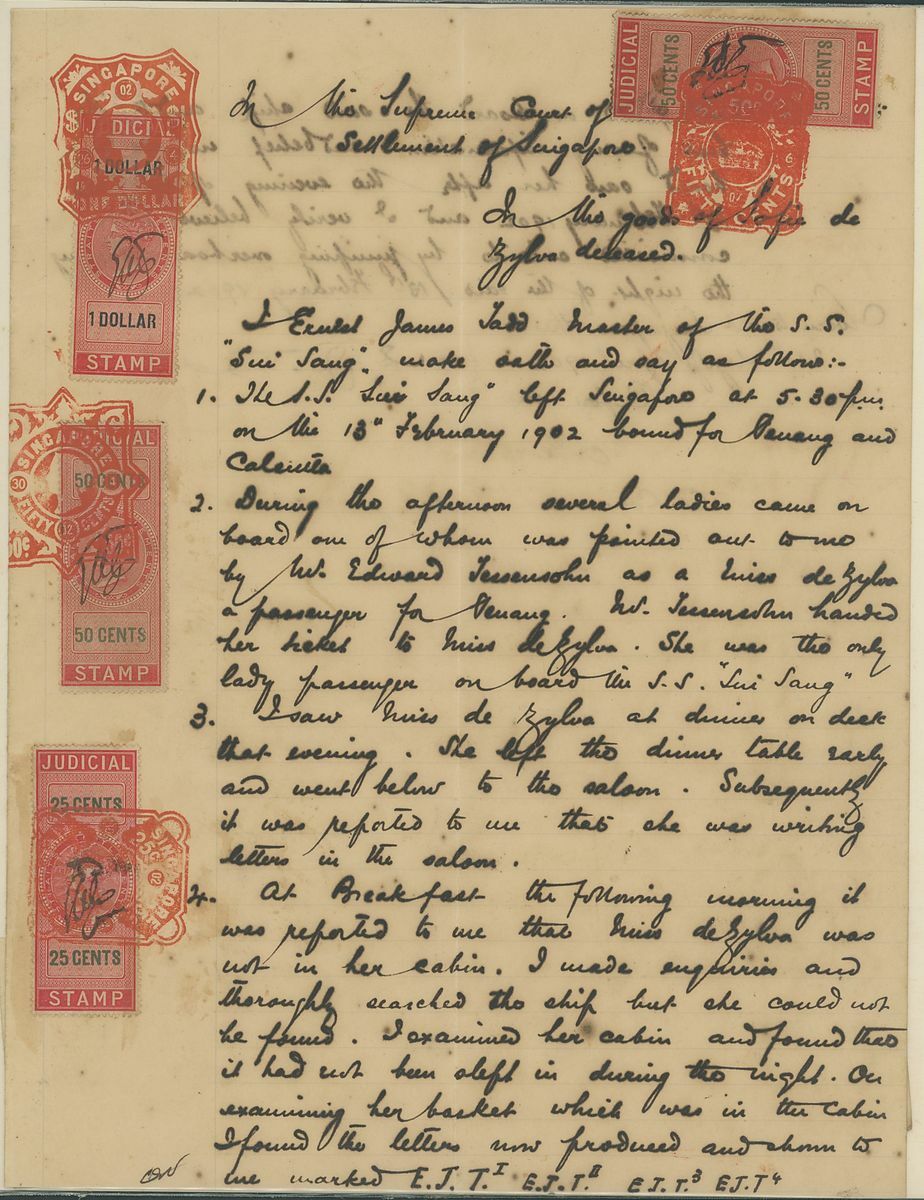 In the Supreme Court of
Settlement of Singapore
In the goods of Sofie de
Zylva deceased.
I Ernest James Tadd Master of the S.S.
"Sui Sang" make oath and say as follows:-
1. The S.S. Sui Sang" left Singapore at 5.30 p.m.
on the 13th February 1902 bound for Penang and
Calcutta
2. During the afternoon several ladies came on
board one of whom was pointed out to me
by Mr. Edward Tessensohn as a Miss de Zylva
a passenger for Penang. Mr. Tessensohn handed
her ticket to Miss de Zylva. She was the only
lady passenger on board the S.S. "Sui Sang"
3. I saw Miss de Zylva at dinner on deck
that evening. She left the dinner table early
and went below to the saloon. Subsequently
it was reported to me that she was writing
letters in the saloon.
4. At Breakfast the following morning it
was reported to me that Miss de Zylva was
not in her cabin. I made enquiries and
thoroughly searched the ship but she could not
be found. I examined her cabin and found that
it had not been slept in during the night. On
examining her basket which was in the cabin
I found the letters now produced and shown to
me marked E.J.T.I E.J.T.II E.J.T.3 E.J.T4
SINGAPORE
02
JUDICIAL
1 DOLLAR
ONE DOLLAR
1 DOLLAR
STAMP
JUDICIAL
50 CENTS
50 CENTS
STAMP
FIFTY CENTS
07
JUDICIAL
SINGAPORE
50 CENTS
30
FIFTY CENTS
02
50c
50 CENTS
STAMP
JUDICIAL
25 CENTS
SINGAPORE
02
25 CENTS
STAMP